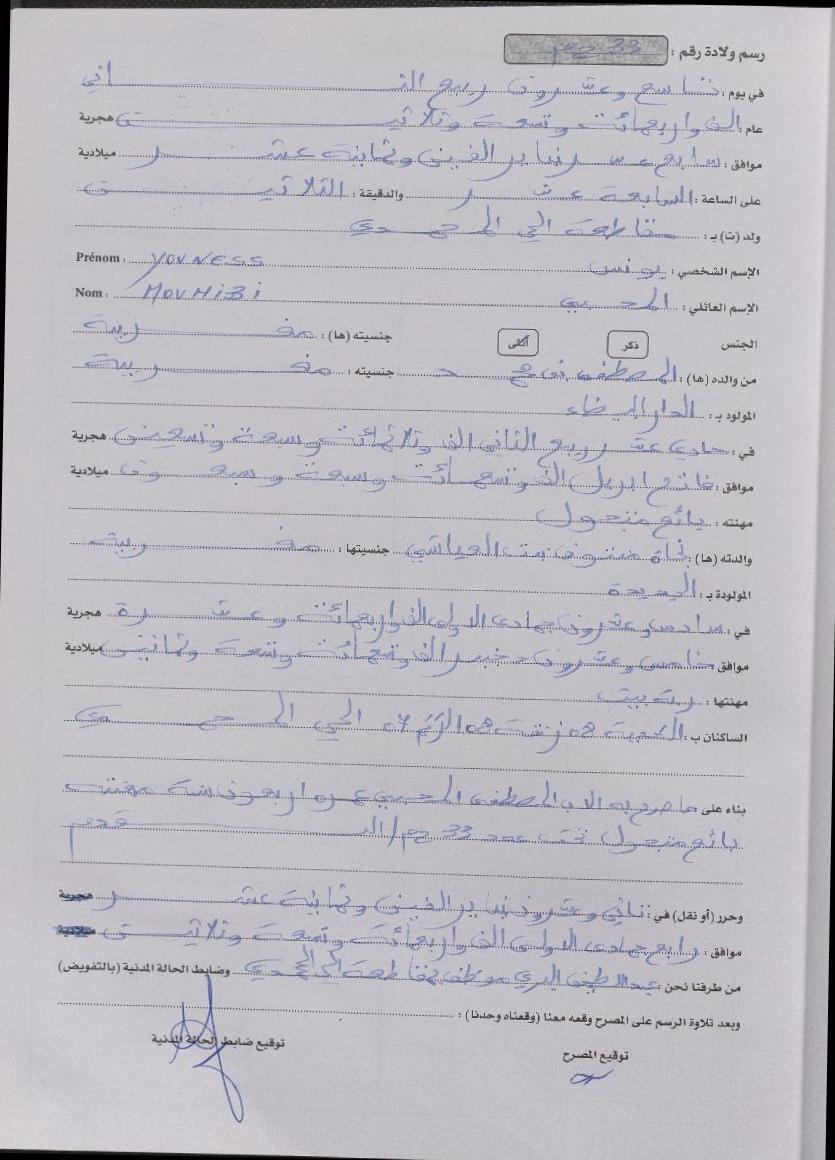 رسم ولادة رقم : 33 حم
في يوم : تاسع وعشرون ربيع الثاني
عام : الف واربعمائة وتسعة وثلاثين هجرية
موافق : سابع عشر يناير الفين وثمانية عشر ميلادية
على الساعة : السابعة عشر والدقيقة : الثلاثين
ولد (ت) بـ : مقاطعة الحي المحمدي
الإسم الشخصي : يونس Prénom : YOUNESS
الإسم العائلي : المحبي Nom : MOUHIBI
الجنس ذكر أنثى جنسيته (ها) : مغربية
من والده (ها) : المصطفى بن محمد جنسيته : مغربية
المولود بـ : الدار البيضاء
في : حادي عشر ربيع الثاني الف وثلاثمائة وسبعة وتسعين هجرية
موافق : فاتح ابريل الف وتسعمائة وسبعة وسبعون ميلادية
مهنته : بائع متجول
والدته (ها) : نجاة بنت العياشي جنسيتها : مغربية
المولودة بـ : الجديدة
في : سادس وعشرون جمادى الاولى الف واربعمائة وعشرة هجرية
موافق : خامس وعشرون دجنبر الف وتسعمائة وتسعة وثمانين ميلادية
مهنتها : ربة بيت
الساكنان ب : زنقة 08 الرقم 04 الحي المحمدي
بناء على ما صرح به الاب المصطفى المحبي عمره اربعون سنة مهنته
بائع متجول تحت عدد 33 حم/
وحرر (أو نقل) في : ثاني وعشرون يناير الفين وثمانية عشر هجرية
موافق : رابع جمادى الاولى الف واربعمائة وتسعة وثلاثين ميلادية
من طرفنا نحن : عبد اللطيف موظف بمقاطعة الحي المحمدي وضابط الحالة المدنية (بالتفويض)
وبعد تلاوة الرسم على المصرح وقعه معنا (وقعناه وحدنا) :
توقيع المصرح توقيع ضابط الحالة المدنية